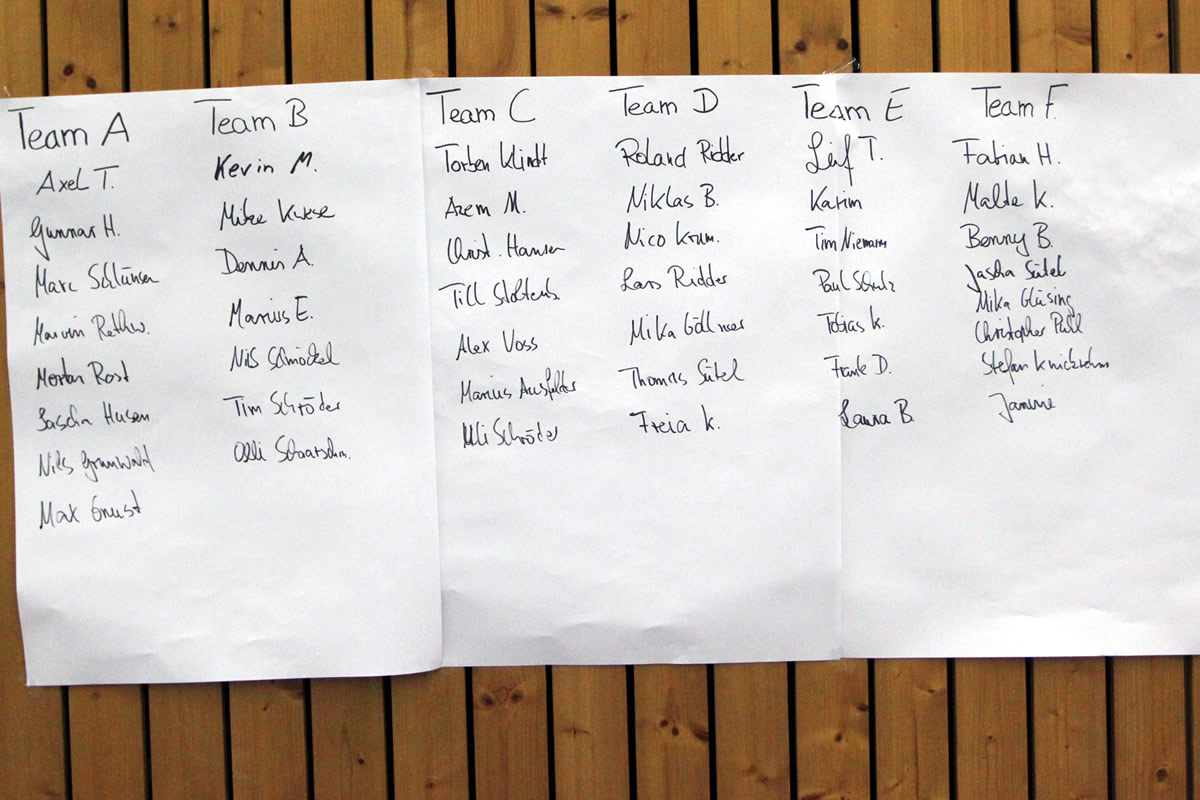 Team A
Axel T.
Gunnar H.
Marc Schlünsen
Marvin Rethw.
Morten Rost
Sascha Husen
Nils Grunwald
Max Gnust
Team B
Kevin M.
Mike Kruse
Dennis A.
Marius E.
Nils Schnöckel
Tim Schröder
Olli Schaatschm.
Team C
Torben Klindt
Arem M.
Christ. Hansen
Till Stoltenb.
Alex Voss
Marius Ausfelder
Ulli Schröder
Team D
Roland Ridder
Niklas B.
Nico Krum.
Lars Ridder
Mika Göllner
Thomas Sütel
Freia K.
Team E
Leif T.
Karim
Tim Niemann
Paul Schulz
Tobias K.
Frank D.
Laura B.
Team F
Fabian H.
Malte K.
Benny B.
Jascha Sütel
Mika Gläsing
Christopher
Stefan Knickrehm
Janine